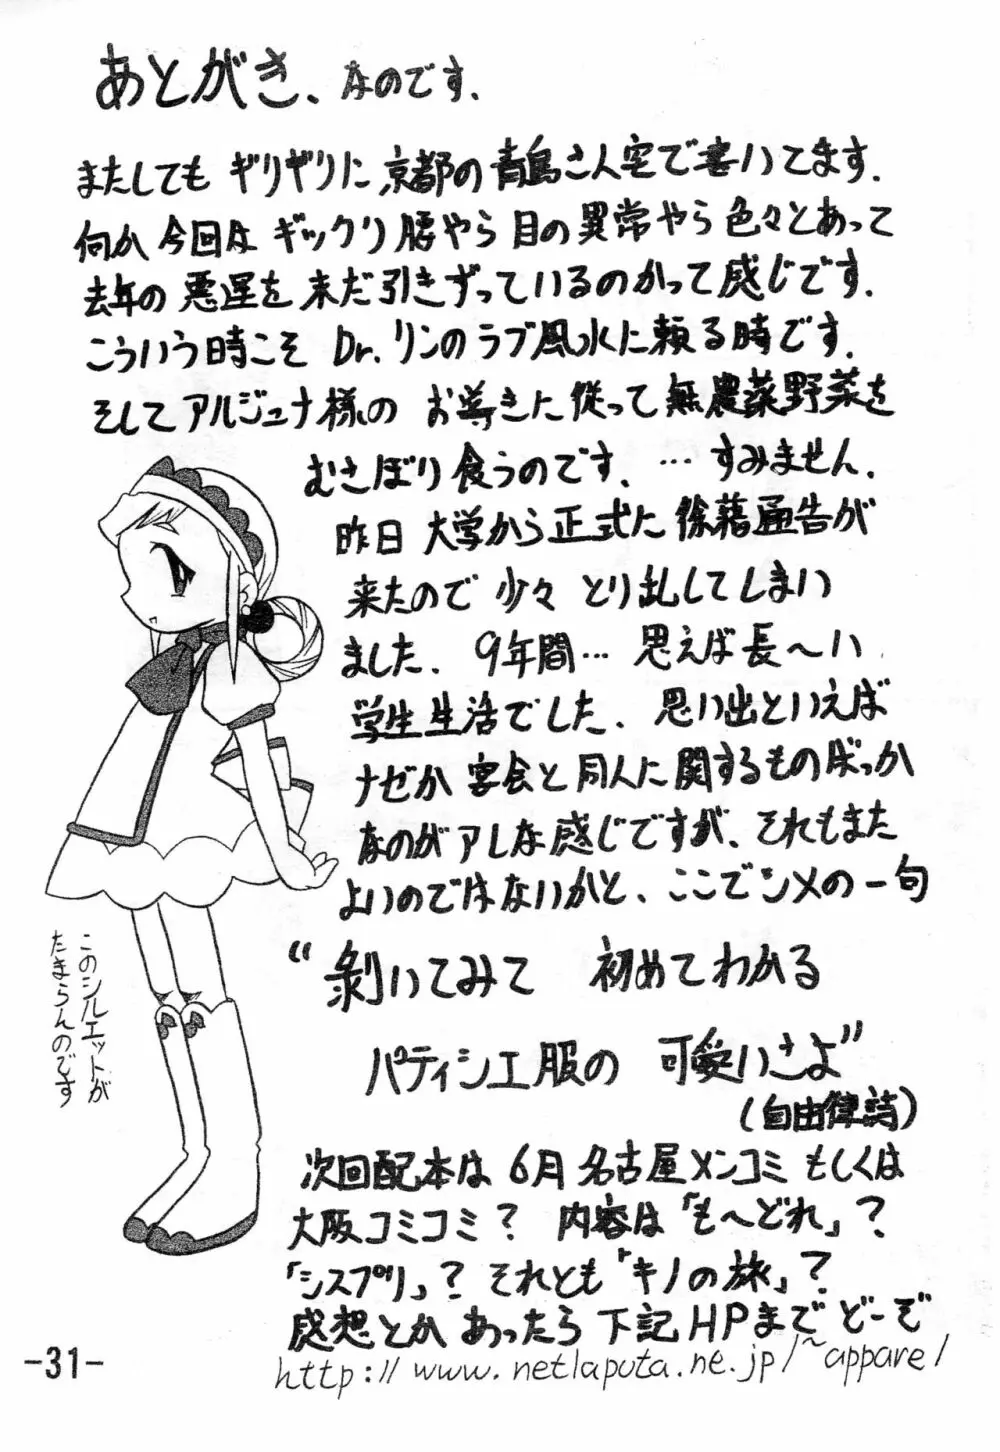 あとがき、なのです。
またしても ギリギリに 京都の青島さん宅で書いてます。
何か今回は ギックリ腰やら 目の異常やら色々とあって
去年の悪運を 未だ引きずっているのかって感じです。
こういう時こそ Dr.リンのラブ風水に頼る時です。
そしてアルジュナ様の お導きに従って無農薬野菜を
むさぼり食うのです。…すみません。
昨日 大学から正式に除籍通告が
来たので 少々 とり乱してしまい
ました。9年間… 思えば長〜い
学生生活でした。思い出といえば
ナゼか 宴会と同人に関するものばっか
なのがアレな感じですが、それもまた
よいのではないかと、ここでシメの一句
“剥いてみて 初めてわかる
パティシエ服の 可愛いさよ”
(自由律詩)
次回配本は 6月名古屋メンコミ もしくは
大阪コミコミ? 内容は「も〜どれ」?
「シスプリ」? それとも「キノの旅」?
感想とか あったら 下記HPまで どーぞ
http://www.netlaputa.ne.jp/~appare/
このシルエットが
たまらんのです
-31-